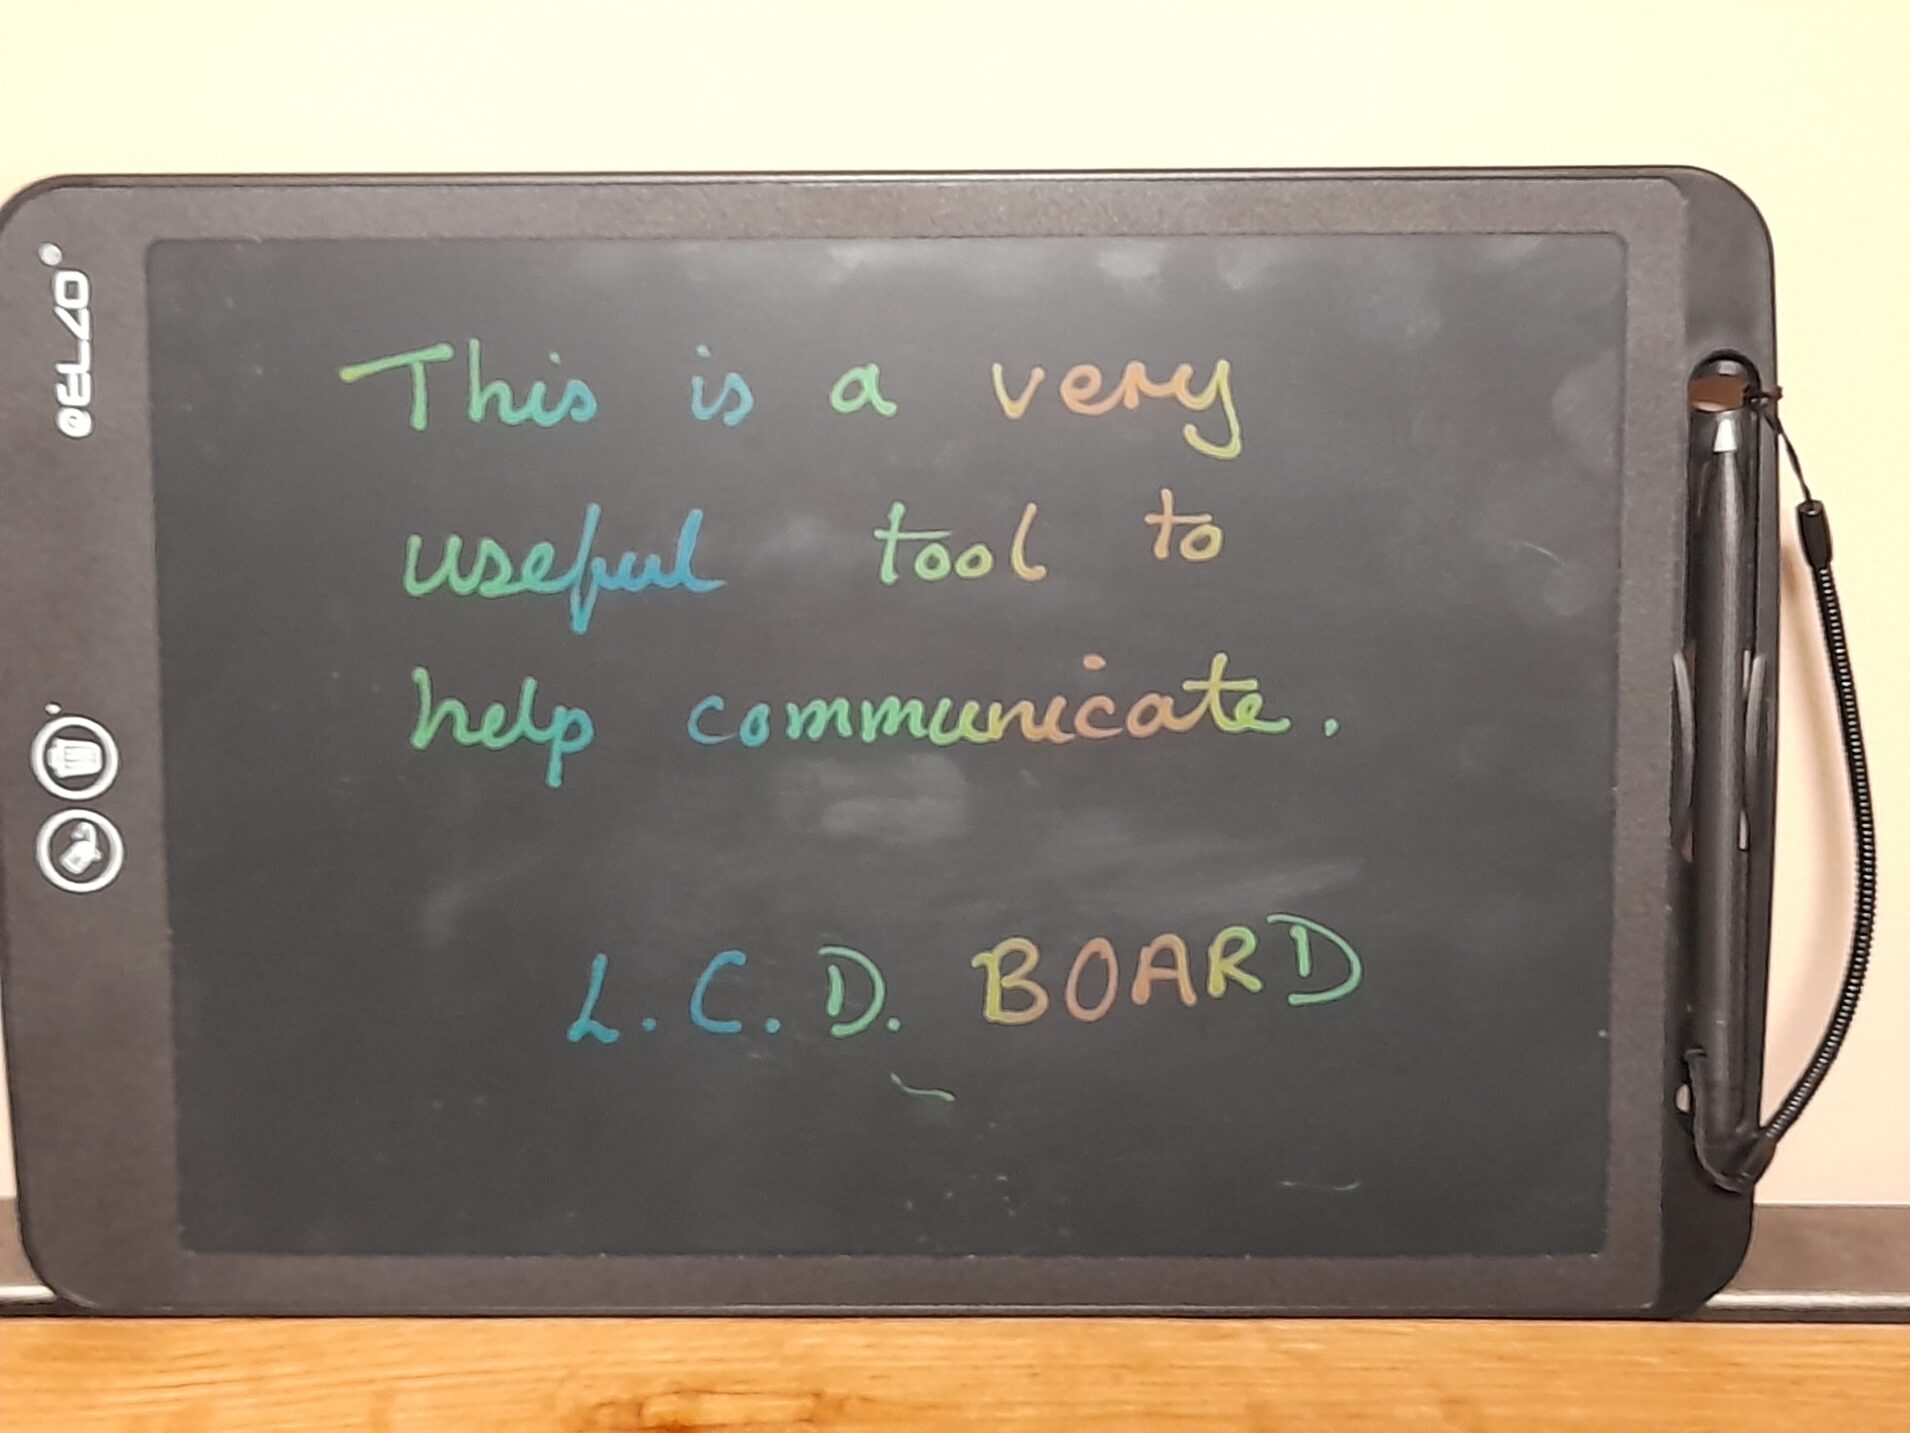 This is a very
useful tool to
help communicate.
L.C.D. BOARD